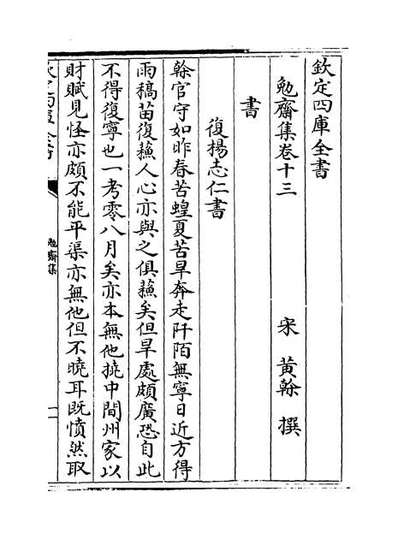 欽定四庫全書
勉齋集卷十三
宋 黃榦 撰
書
復楊志仁書
榦官守如昨春苦蝗夏苦旱奔走阡陌無寧日近方得
雨稿苗復蘓人心亦與之俱蘓矣但旱處頗廣恐自此
不得復寧也一考零八月矣亦本無他撓中間州家以
財賦見怪亦頗不能平渠亦無他但不曉耳既憤然取
勉齋集